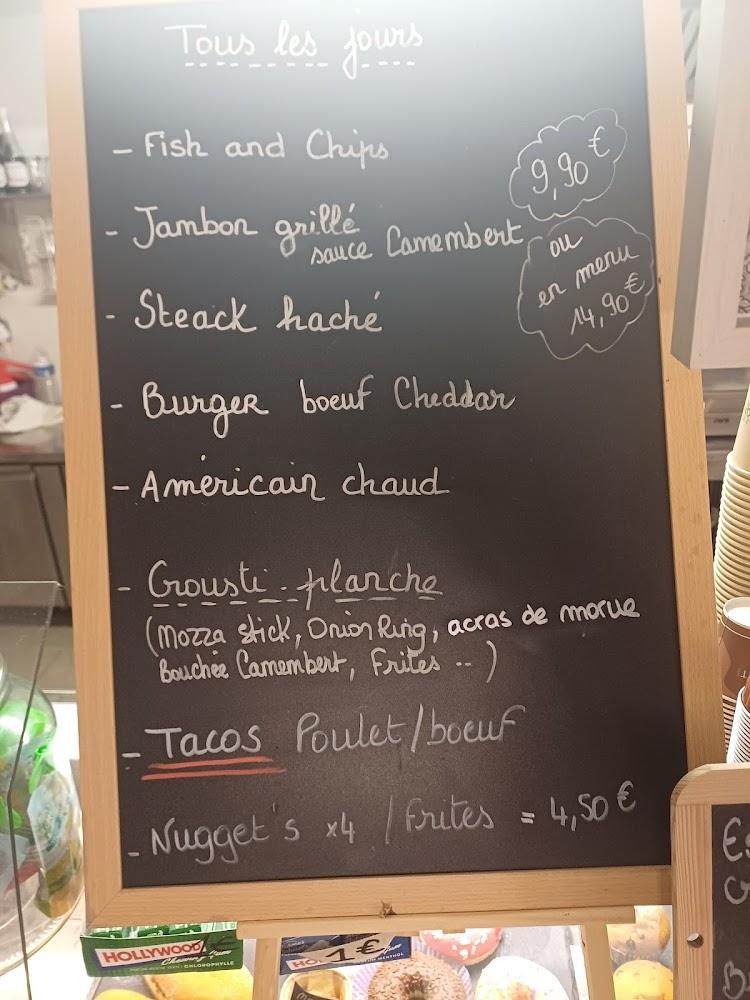 Tous les jours
- Fish and Chips
9,90 €
- Jambon grillé
sauce Camembert
ou
en menu
14,90 €
- Steack haché
- Burger boeuf Cheddar
- Américain chaud
- Crousti-planche
(Mozza stick, Onion Ring, acras de morue
Bouchée Camembert, Frites ..)
- Tacos Poulet/boeuf
- Nugget's x4 / Frites = 4,50 €
HOLLYWOOD
Chewing Gum
CHLOROPHYLLE
1 €